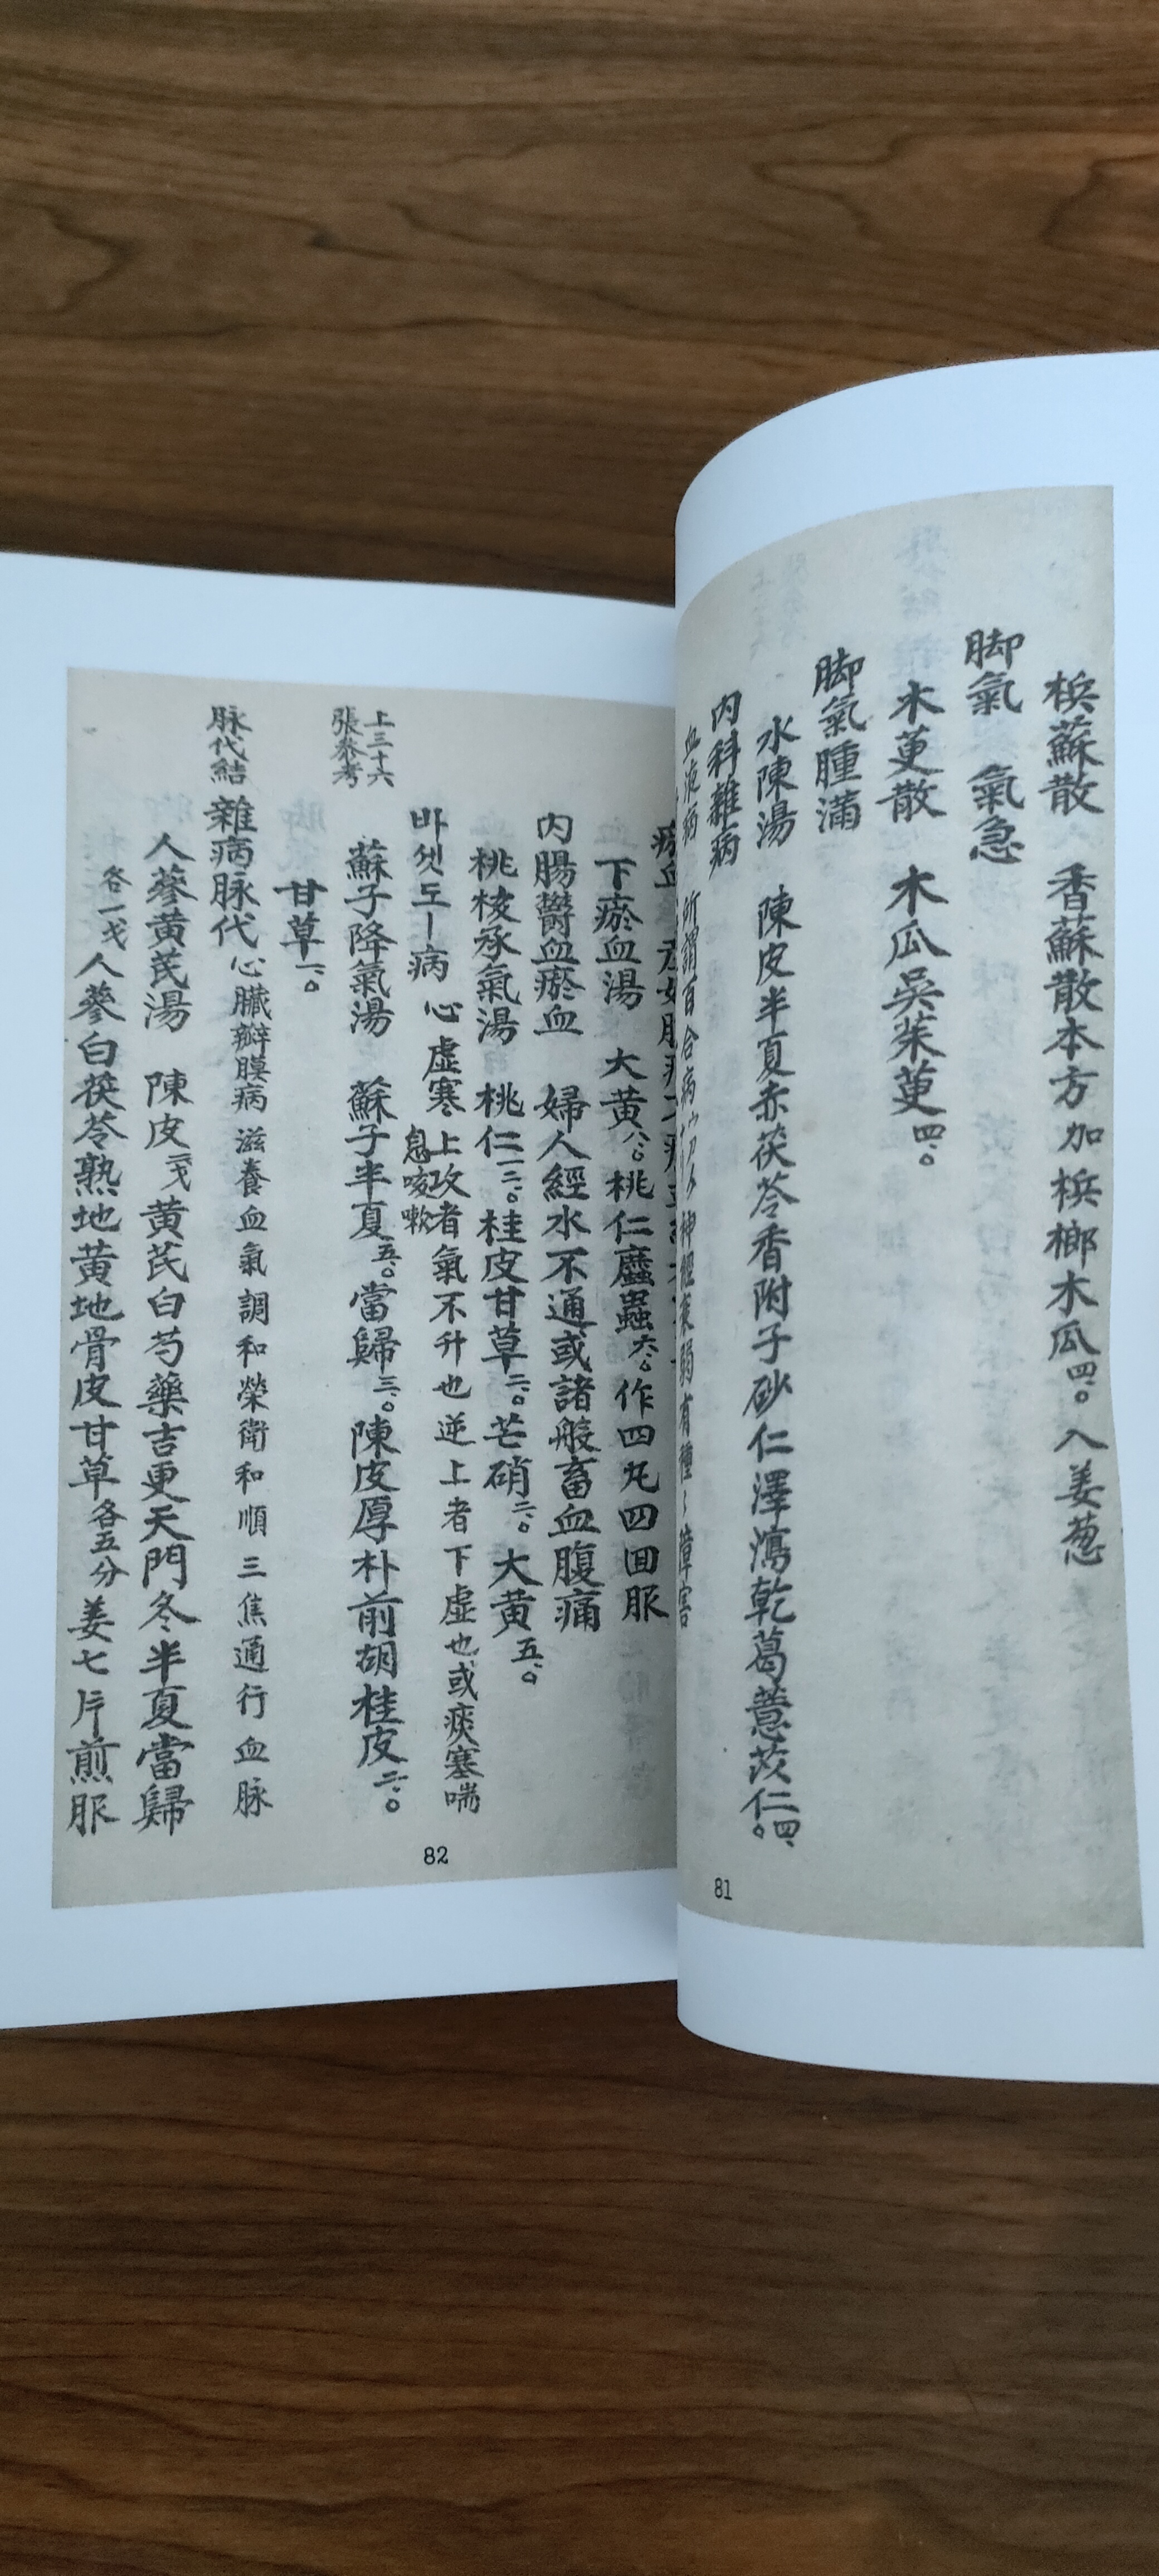 梹蘇散 香蘇散本方加梹榔木瓜四、。入姜葱
脚氣 氣急
木萸散 木瓜吳茱萸四、。
脚氣腫滿
水陳湯 陳皮半夏赤茯苓香附子砂仁澤瀉乾葛薏苡仁四、。
內科雜病
血液病 所謂百合病 神經衰弱有種〻障害
81
瘀血
下瘀血湯 大黃八、。桃仁䗪蟲六、。作四丸四回服
內腸欝血瘀血 婦人經水不通或諸般畜血腹痛
桃核承氣湯 桃仁一二、。桂皮甘草二、。芒硝二、。大黃五、。
바셋도ー病 心虛寒上攻者氣不升也逆上者下虛也或痰塞喘
息咳嗽
上三十六
張參考
蘇子降氣湯 蘇子半夏五、。當歸三、。陳皮厚朴前胡桂皮二、。
甘草一、。
脉代結 雜病脉代 心臟瓣膜病 滋養血氣調和榮衛和順三焦通行血脉
人蔘黃芪湯 陳皮二戔黃芪白芍藥吉更天門冬半夏當歸
各一戔人蔘白茯苓熟地黃地骨皮甘草各五分姜七片煎服
82